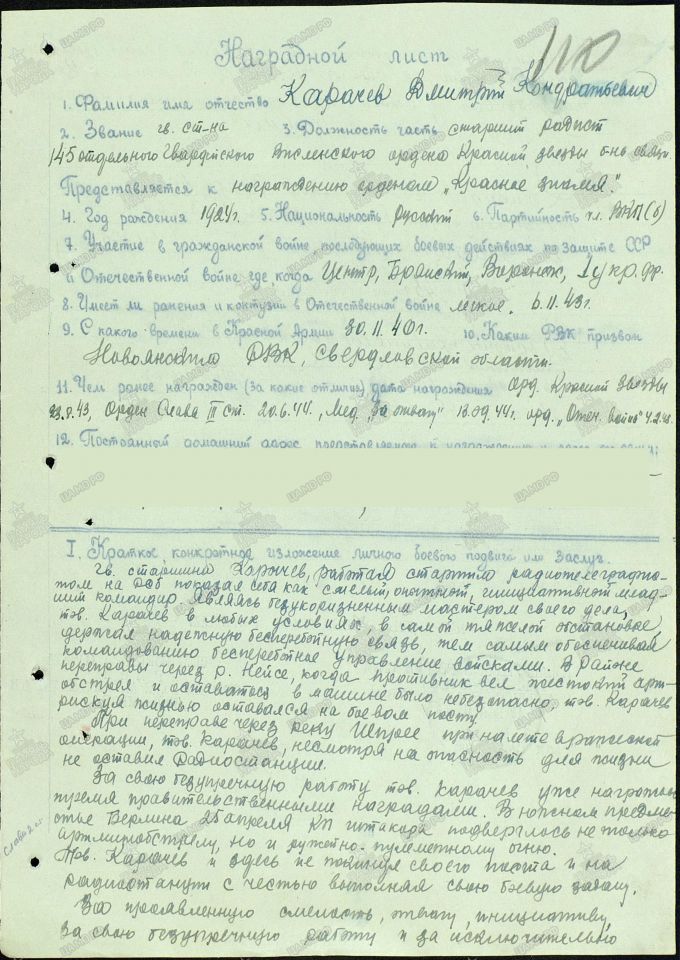 Наградной лист
1. Фамилия имя отчество Карачев Дмитрий Кондратьевич
2. Звание гв. ст-на 3. Должность часть старший радист
145 отдельного Гвардейского ордена Красной звезды б-на связи
Представляется к награждению орденом „Красное знамя."
4. Год рождения 1924г. 5. Национальность русский 6. Партийность чл. ВКП(б)
7. Участие в гражданской войне последующих боевых действиях по защите СССР
и Отечественной войне где когда Центр, Брянский, Воронеж, 1 укр. фр.
8. Имеет ли ранения и контузии в Отечественной войне легкое. 6.11.43г.
9. С какого времени в Красной Армии 30.11.40г. 10. Каким РВК призван
РВК, Свердловской области.
11. Чем ранее награжден (за какие отличия) дата награждения орд. Красной звезды
43, Орден Слава III ст. 20.6.44., Мед. „За отвагу" 13.09.44г. орд. „Отеч. войны"
12. Постоянный домашний адрес представляемого к награждению и адрес его семьи:
I. Краткое, конкретное изложение личного боевого подвига или заслуг.
гв. старшина Карачев, работая старшим радиотелеграфис-
том на РСБ показал себя как смелый, опытный, инициативный млад-
ший командир. Являясь безукоризненным мастером своего дела,
тов. Карачев в любых условиях, в самой тяжелой обстановке,
держал надежную бесперебойную связь, тем самым обеспечивая
командованию бесперебойное управление войсками. В районе
переправы через р. Нейсе, когда противник вел жестокий арт-
обстрел и оставаться в машине было небезопасно, тов. Карачев
рискуя жизнью оставался на боевом посту
При переправе через реку Шпрее при налете вражеской
авиации, тов. Карачев, несмотря на опасность для жизни
не оставил радиостанции.
За свою безупречную работу тов. Карачев уже награжден
тремя правительственными наградами. В южном предме-
стье Берлина 25 апреля КП штакора подверглось не только
артминобстрелу, но и ружейно-пулеметному огню.
Тов. Карачев и здесь не покинул своего поста и на
радиостанции с честью выполнял свою боевую задачу.
За проявленную смелость, отвагу, инициативу,
за свою безупречную работу и за исключительно